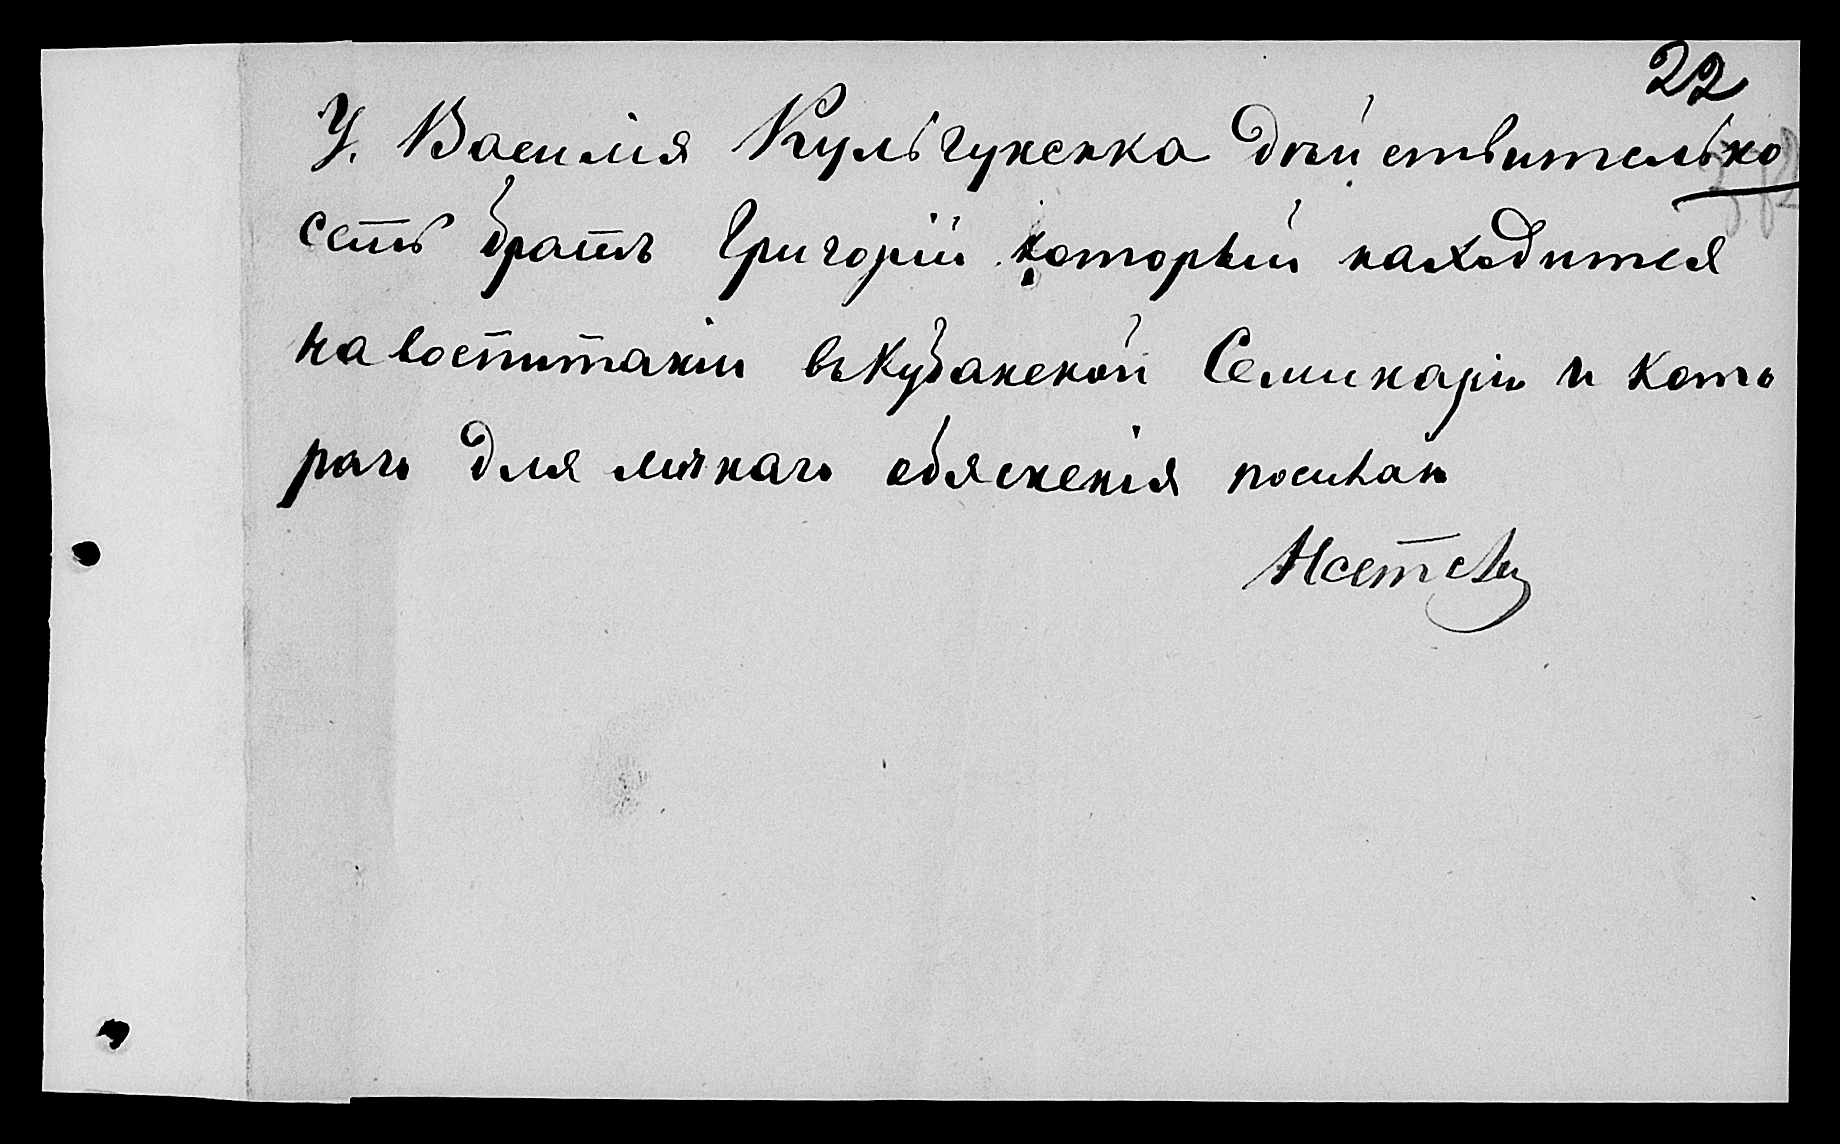 22
У. Василія Кульгукенка дѣйствительно
есть братъ Григорій который находится
на воспитаніи въ Кубанской Семинаріи и кото
раго для личнаго обясненія посилаю